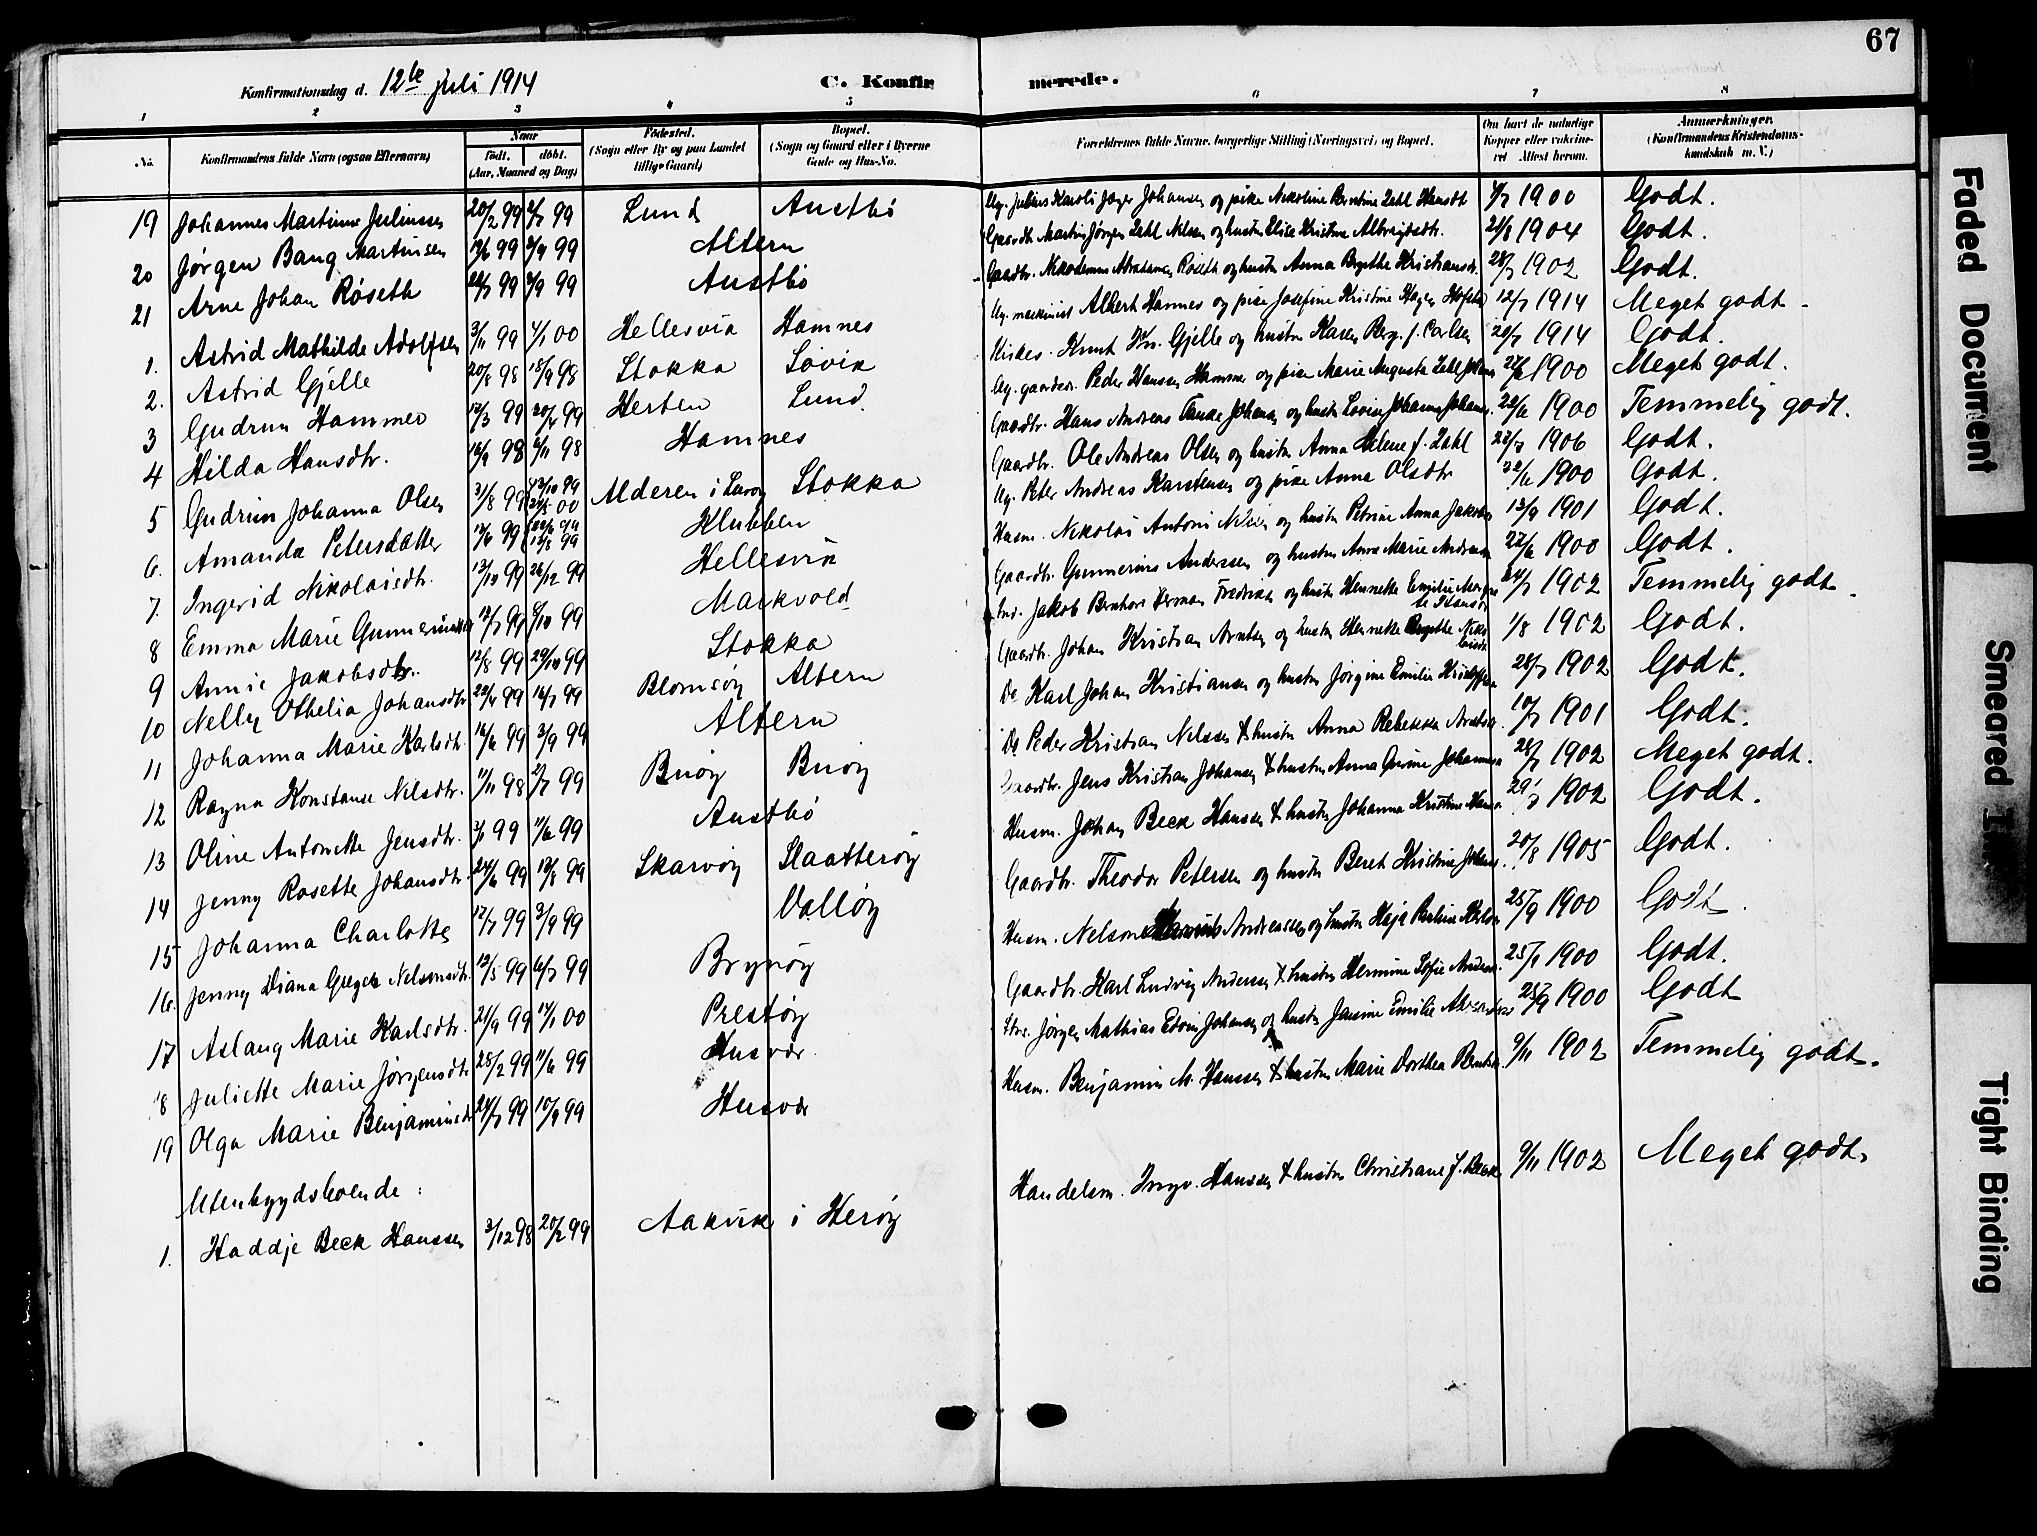 67
Konfirmationsdag d. 12te Juli 1914 C. Konfir merede.
1 2 3 4 5 6 7 8
No. Konfirmandens fulde Navn (ogsaa Efternavn) Naar født. døbt. (Aar, Maaned og Dag) Fødested. (Sogn eller By og paa Landet tillige Gaard) Bopæl. (Sogn og Gaard eller i Byerne Gade og Hus-No. Forældrenes fulde Navne, borgerlige Stilling (Næringsvei) og Bopæl. Om havt de naturlige Kopper eller vaksineret. Attest herom. Anmærkninger. (Konfirmandens Kristendomskundskab m. V.)
19 Johannes Martinus Juliussen 20/2 99 2/7 99 Lund Austbø Ug. Julius Karoli Jæger Johansen og pike Nikoline Berntine Zahl Hansdt 4/7 1900 Godt.
20 Jørgen Bang Martinsen 12/6 99 3/9 99 Altern Gaardbr. Martin Jørgen Zahl Nilsen og hustru Elise Kristine Albrigtsdtr. 21/8 1904 Godt.
21 Arne Johan Røseth 24/7 99 3/9 99 Austbø Gaardbr. Nikodemus Abrahamsen Røseth og hustru Anna Birgithe Kristiansdtr. 28/7 1902 Godt.
1. Astrid Mathilde Adolfsen 3/11 99 4/1 00 Hellesvia Hamnes Ug. maskinist Albert Hannes og pike Josefine Kristine Hagen Hofstad 12/7 1914 Meget godt.
2. Astrid Gjelle 20/8 98 18/9 98 Stokka Søvik Kirkes. Knut Kn. Gjelle og hustru Karen Berg f. Carlsen 20/7 1914 Godt.
3 Gudrun Hammer 12/3 99 20/4 99 Herten Lund. Ug. gaardbr. Peder Hansen Hammer og pike Marie Augusta Zahl Johans 22/6 1900 Meget godt.
4 Hilda Hansdtr. 16/9 98 6/11 98 Hamnes Gaardbr. Hans Andreas Tande Johansen og hustru Lovise Johanna Johans. 22/6 1900 Temmelig godt.
5 Gudrun Johanna Olsen 31/8 99 Alderen i Lurøy Stokka Gaardbr. Ole Andreas Olsen og hustru Anna Helene f. Zahl 27/7 1906 Godt.
6. Amanda Petersdatter 17/6 99 Klubben Ug. Peter Andreas Karstensen og pike Anna Olsdtr 22/6 1900 Godt.
7. Ingerid Nikolaisdtr. 13/10 99 26/12 99 Hellesvia Husm. Nikolai Antoni Nilsen og hustru Petrine Anna Jakobs 13/9 1901 Godt.
8 Emma Marie Gunneriusdtr 12/7 99 8/10 99 Markvold Gaardbr. Gunnerius Anderssen og hustru Anne Marie Andreas 22/6 1900 Godt.
9 Annie Jakobsdtr. 12/8 99 29/10 99 Stokka Ind. Jakob Bernhart Herman Fredriksen og hustru Hennette Emilie Mar 24/7 1902 Temmelig godt.
10 Nelly Othelia Johansdtr 22/4 99 16/7 99 Blomsøy Altern Gaardbr. Johan Kristian Arntsen og hustru Hennette Birgitte Nikolaisdtr 1/8 1902 Godt.
11 Johanna Marie Karlsdtr. 16/6 99 3/9 99 Altern Do Karl Johan Kristiansen og hustru Jørgine Emilie Kristoffers 28/7 1902 Godt.
12 Ragna Konstanse Nilsdtr. 11/11 98 2/7 99 Buøy Buøy Do Peder Kristian Nilssen & hustru Anna Rebekka Arntsdr. 10/7 1901 Godt.
13 Oline Antonette Jensdtr. 3/1 99 11/6 99 Austbø Gaardbr. Jens Kristian Johansen & hustru Anna Gurine Johannesd 28/7 1902 Meget godt.
14 Jenny Rosette Johansdtr. 24/6 99 13/8 99 Skarvøy Slaatterøy Husm. Johan Beck Hanssen & hustru Johanna Kristine Hansd 29/7 1902 Godt.
15 Johanna Charlotte 12/7 99 3/9 99 Valløy Gaardbr. Theodor Petersen og hustru Beret Kristine Johans. 20/8 1905 Godt.
16. Jenny Diana Greger Nelsonsdtr. 12/5 99 6/7 99 Brynøy Husm. Nelson Andreassen og hustru Haja Perline Karls 25/9 1900 Godt.
17 Aslaug Marie Karlsdtr. 21/9 99 14/1 00 Prestøy Gaardbr. Karl Ludvig Andersen & hustru Hermine Sofie Anders. 25/1 1900 Godt.
18 Juliette Marie Jørgensdtr 28/2 99 11/6 99 Husvær. Jørgen Mathias Edvin Johansen og hustru Jensine Emilie Aleksanders 25/9 1900 Godt
19 Olga Marie Benjaminsdtr 24/7 99 10/9 99 Husvær Husm. Benjamin M. Hanssen & hustru Marie Dorthea Berntsd. 9/11 1902 Temmelig godt.
Utenbygdsboende:
1. Haddje Beck Hanssen 3/12 98 20/2 99 Aakvik i Herøy Handelsm. Ingv. Hanssen & hustru Christiane f. Beck 9/11 1902 Meget godt.
Faded Document
Smeared Ink
Tight Binding